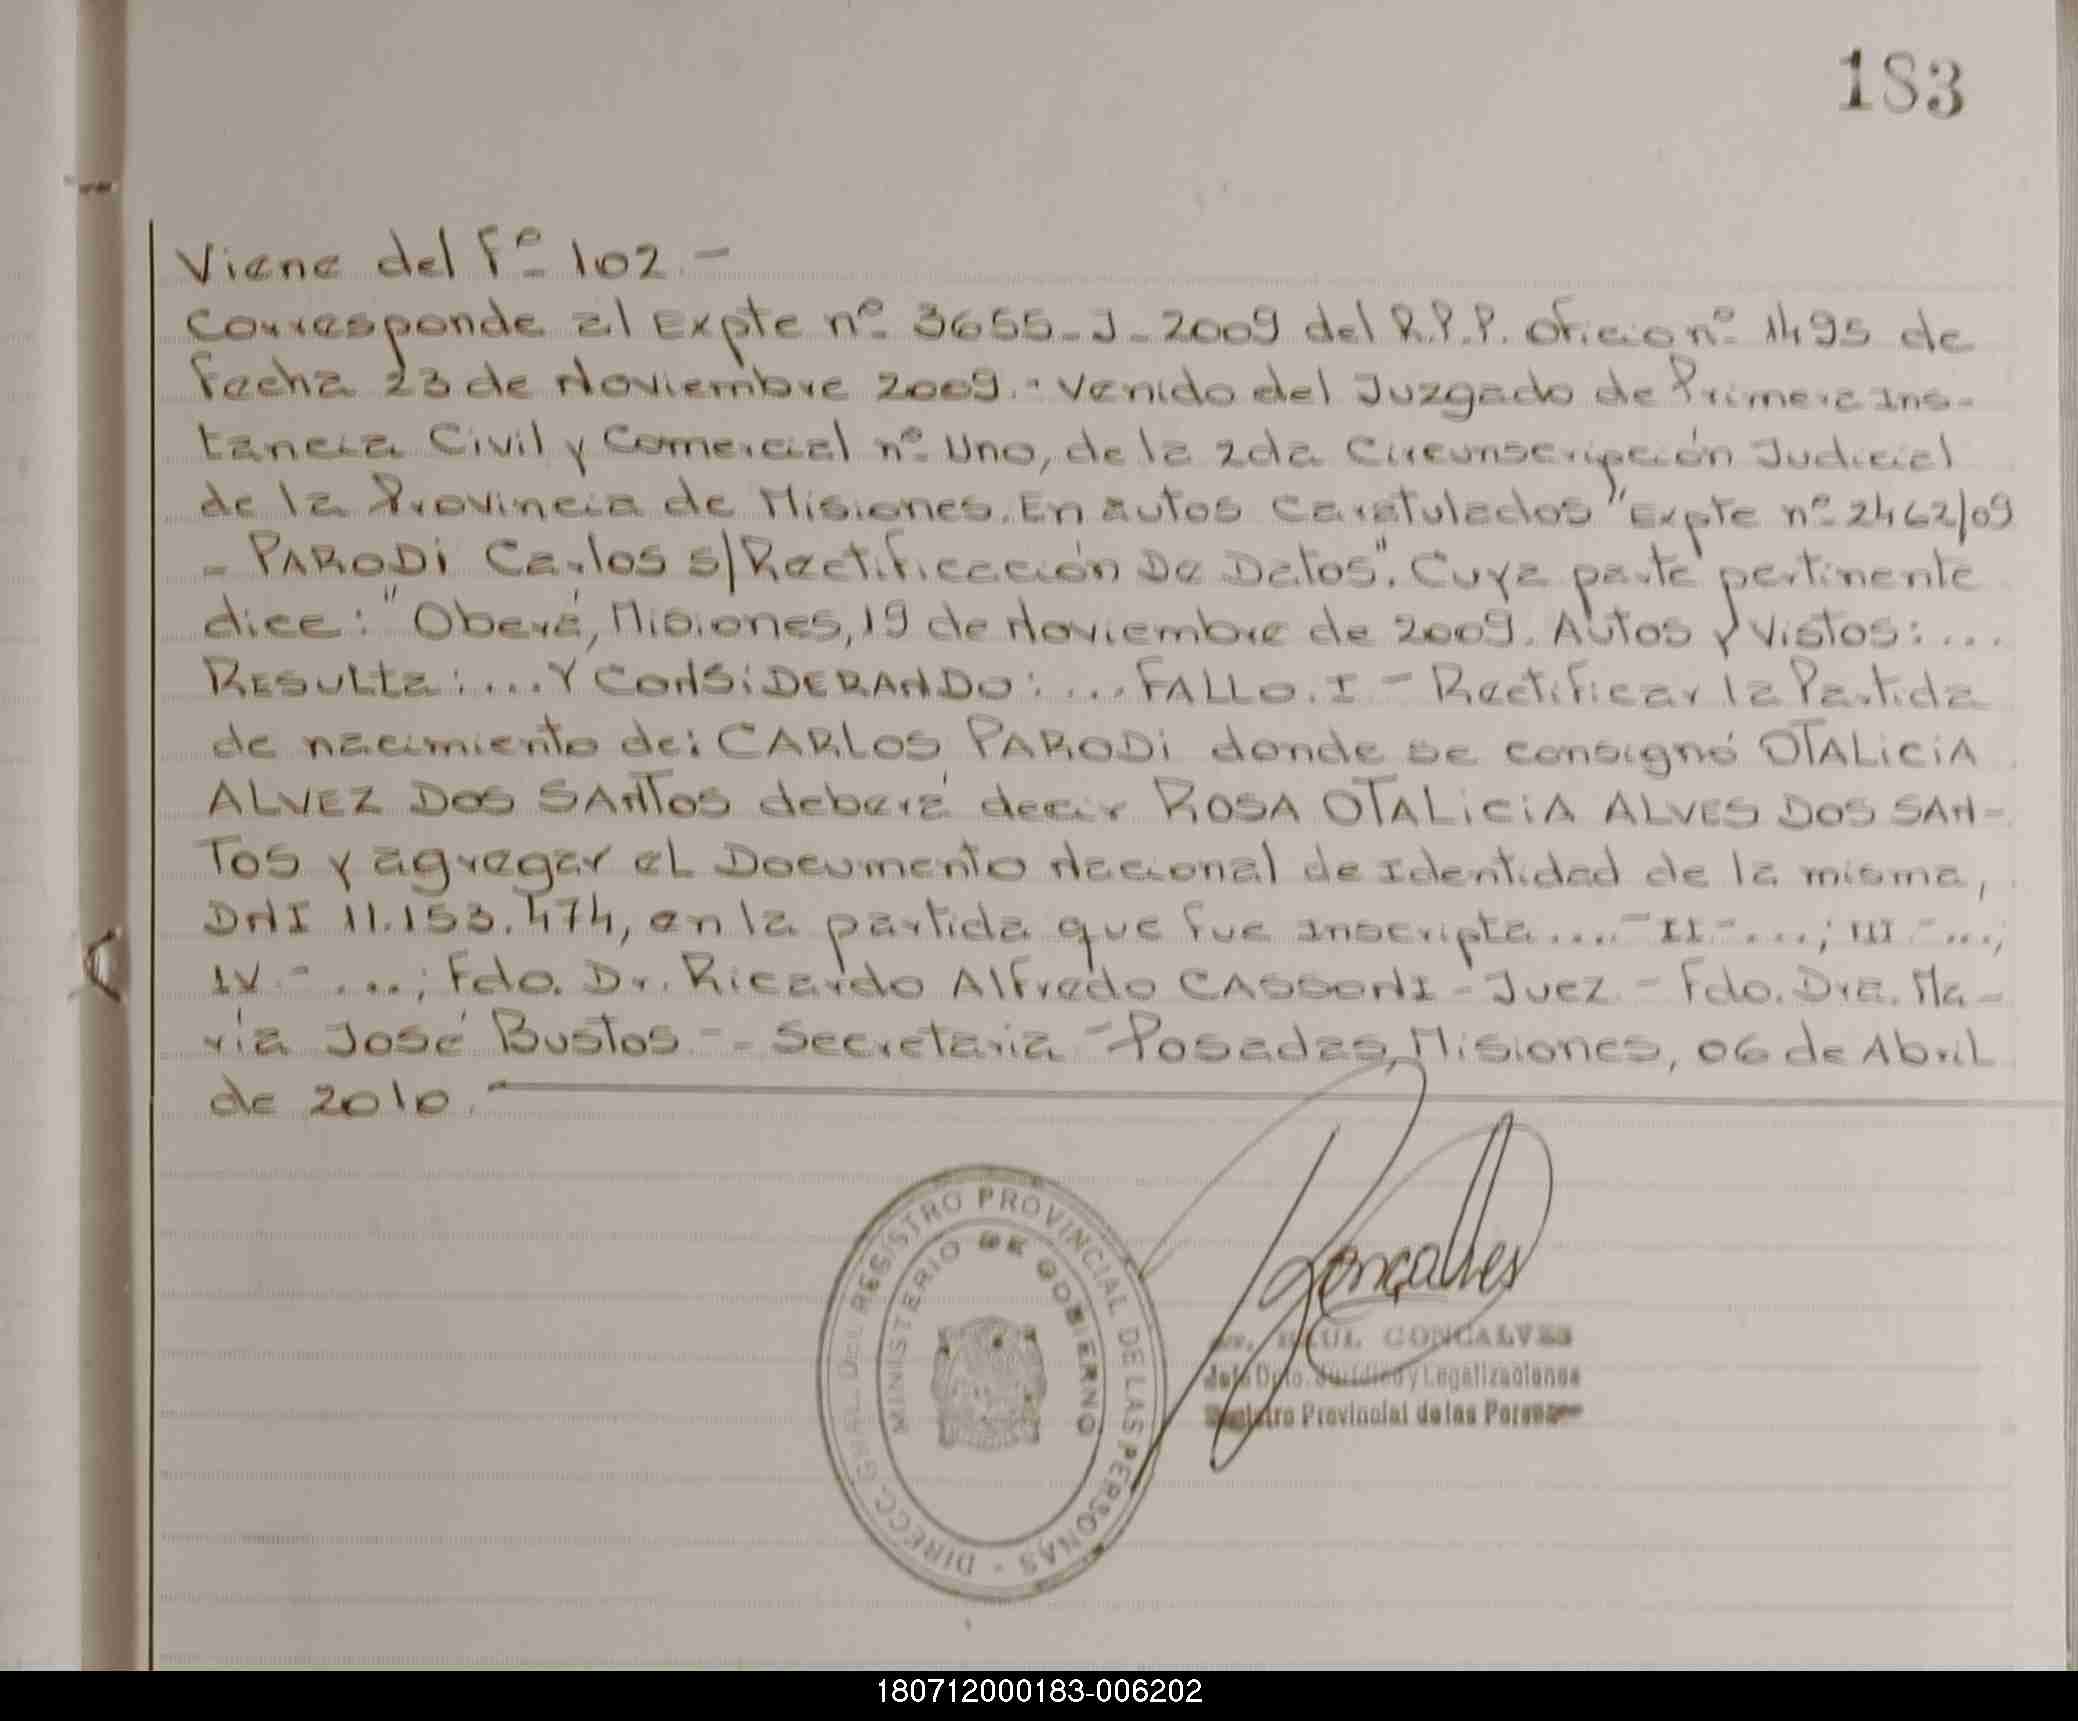 183
Viene del Fº 102.-
Corresponde al Expte nº 3655-J-2009 del R.P.P. Oficio nº 1495 de
fecha 23 de Noviembre 2009.- Venido del Juzgado de Primera Ins-
tancia Civil y Comercial nº Uno, de la 2da Circunscripción Judicial
de la Provincia de Misiones. En autos caratulados "Expte nº 2462/09
- PARODI Carlos s/Rectificación De Datos". Cuya parte pertinente
dice: "Oberá, Misiones, 19 de Noviembre de 2009. Autos y Vistos:...
RESULTA:...Y CONSIDERANDO:...FALLO. I - Rectificar la Partida
de nacimiento de: CARLOS PARODI donde se consignó OTALICIA
ALVEZ DOS SANTOS deberá decir ROSA OTALICIA ALVES DOS SAN-
TOS y agregar el Documento Nacional de Identidad de la misma,
DNI 11.153.474, en la partida que fue inscripta....- II-...; III-...;
IV.-...; Fdo. Dr. Ricardo Alfredo CASSONI - Juez - Fdo. Dra. Ma-
ría José Bustos -- Secretaria - Posadas, Misiones, 06 de Abril
de 2010.
DIRECC. GRAL. DEL REGISTRO PROVINCIAL DE LAS PERSONAS -
MINISTERIO DE GOBIERNO
Goncalves
RAUL GONCALVES
Jefe Dpto. Jurídico y Legalizaciones
Registro Provincial de las Personas
180712000183-006202